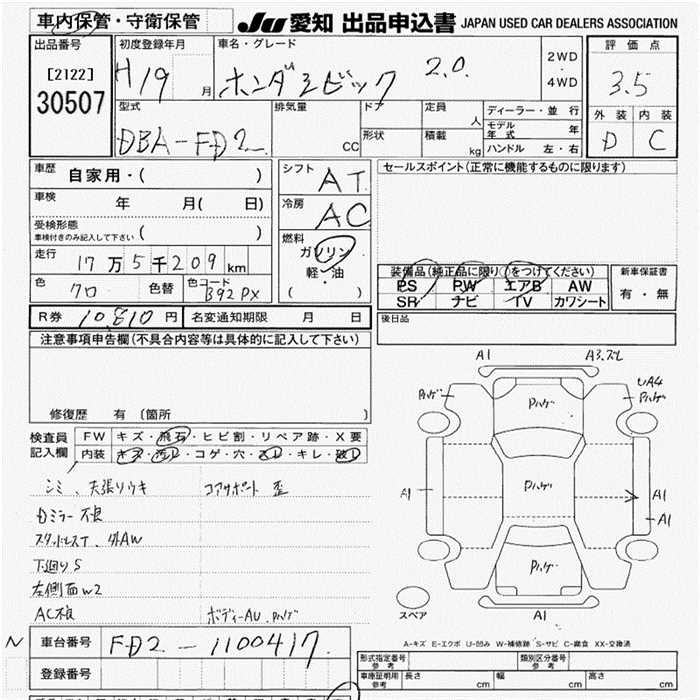 車内保管・守衛保管
JU 愛知 出品申込書 JAPAN USED CAR DEALERS ASSOCIATION
出品番号
[2122]
30507
初度登録年月
H19 月
車名・グレード
ホンダシビック 2.0
2WD
・
4WD
評価点
3.5
外装 内装
D C
型式
DBA-FD2
排気量
CC
ドア
形状
定員
人
積載
kg
ディーラー・並行
モデル年式 年
ハンドル 左・右
車歴
自家用・( )
車検
年 月( 日)
受検形態
車検付きのみ記入して下さい ( )
走行
17万5千209km
色
クロ
色替
色コード
B92PX
シフト
AT
冷房
AC
燃料
ガソリン
・
軽・油
( )
セールスポイント(正常に機能するものに限ります)
装備品(純正品に限り○をつけてください)
PS PW エアB AW
SR ナビ TV カワシート
新車保証書
有・無
後日品
R券 10,810円
名変通知期限 月 日
注意事項申告欄(不具合内容等は具体的に記入して下さい)
修復歴 有 〔箇所 〕
検査員
記入欄
FW キズ・飛石・ヒビ割・リペア跡・X要
内装 キズ・汚レ・コゲ・穴・スレ・キレ・破レ
シミ、天張リウキ
コアサポート 歪
Dミラー不良
スタッドレスT、外AW
下廻りS
左側面W2
AC不良
ボディーAU、Pハゲ
A1
A3.ズレ
Pハゲ
UA4
Pハゲ
Pハゲ
A1
Pハゲ
A1
A1
Pハゲ
スペア
A1
A-キズ E-エクボ U-凹み W-補修跡 S-サビ C-腐食 XX-交換済
N
車台番号
FD2-1100417
登録番号
形式指定番号
参考
類別区分番号
参考
車庫証明用
参考
長さ cm 幅 cm 高さ cm